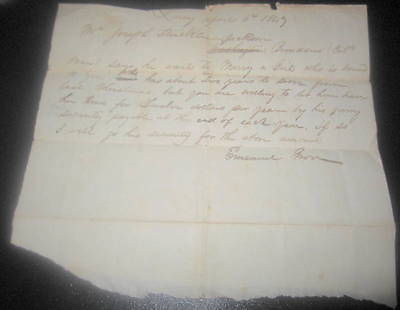 April 5th 1849
Mr Joseph Jackson
says he wants to Marry a Girl who is bound
to you has about two years to serve from
last Christmas but you are willing to let him have
her time for Twelve dollars per year by his giving
security payable at the end of each year. if so
I will go his security for the above amount
Emanuel